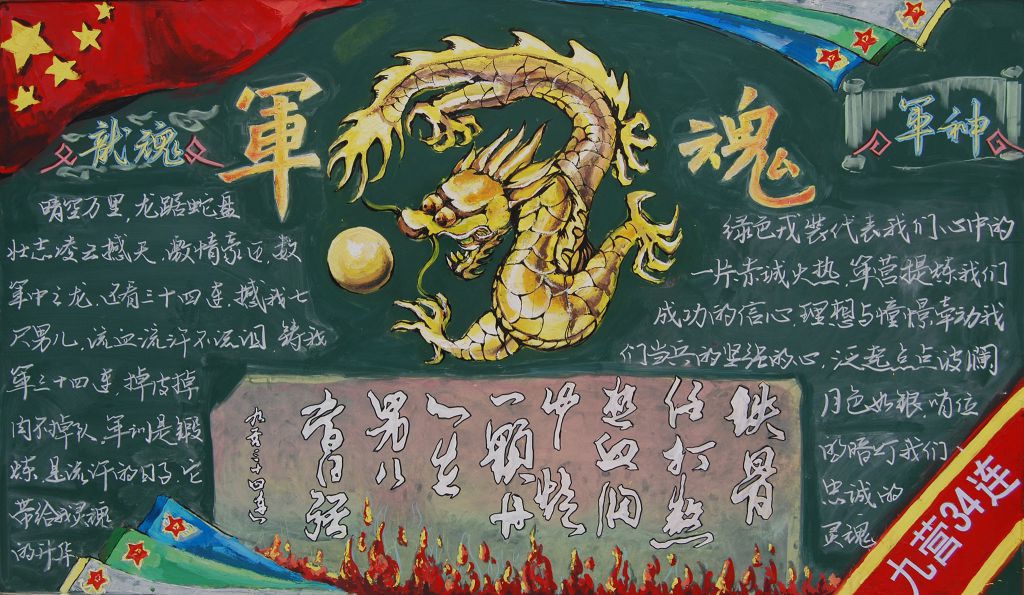 軍魂
龙魂
晴空万里,龙踞蛇盘
壮志凌云撼天,激情豪迈,数
军中之龙,还看三十四连,撼我七
尺男儿,流血流汗不流泪,铸我
军三十四连,掉皮掉
肉不掉队,军训是锻
炼,是流汗的日子,它
带给我灵魂
的升华
軍神
绿色戎装代表我们心中的
一片赤城火热,军营提炼我们
成功的信心,理想与憧憬牵动我
们当兵的坚强的心,泛起点点波澜
月色如银,哨位
的暗叮我们
忠诚的
灵魂
铁骨
任打熬
热血润
中怀
一颗丹
一生
男儿
当自强
九营三十四连
九营34连